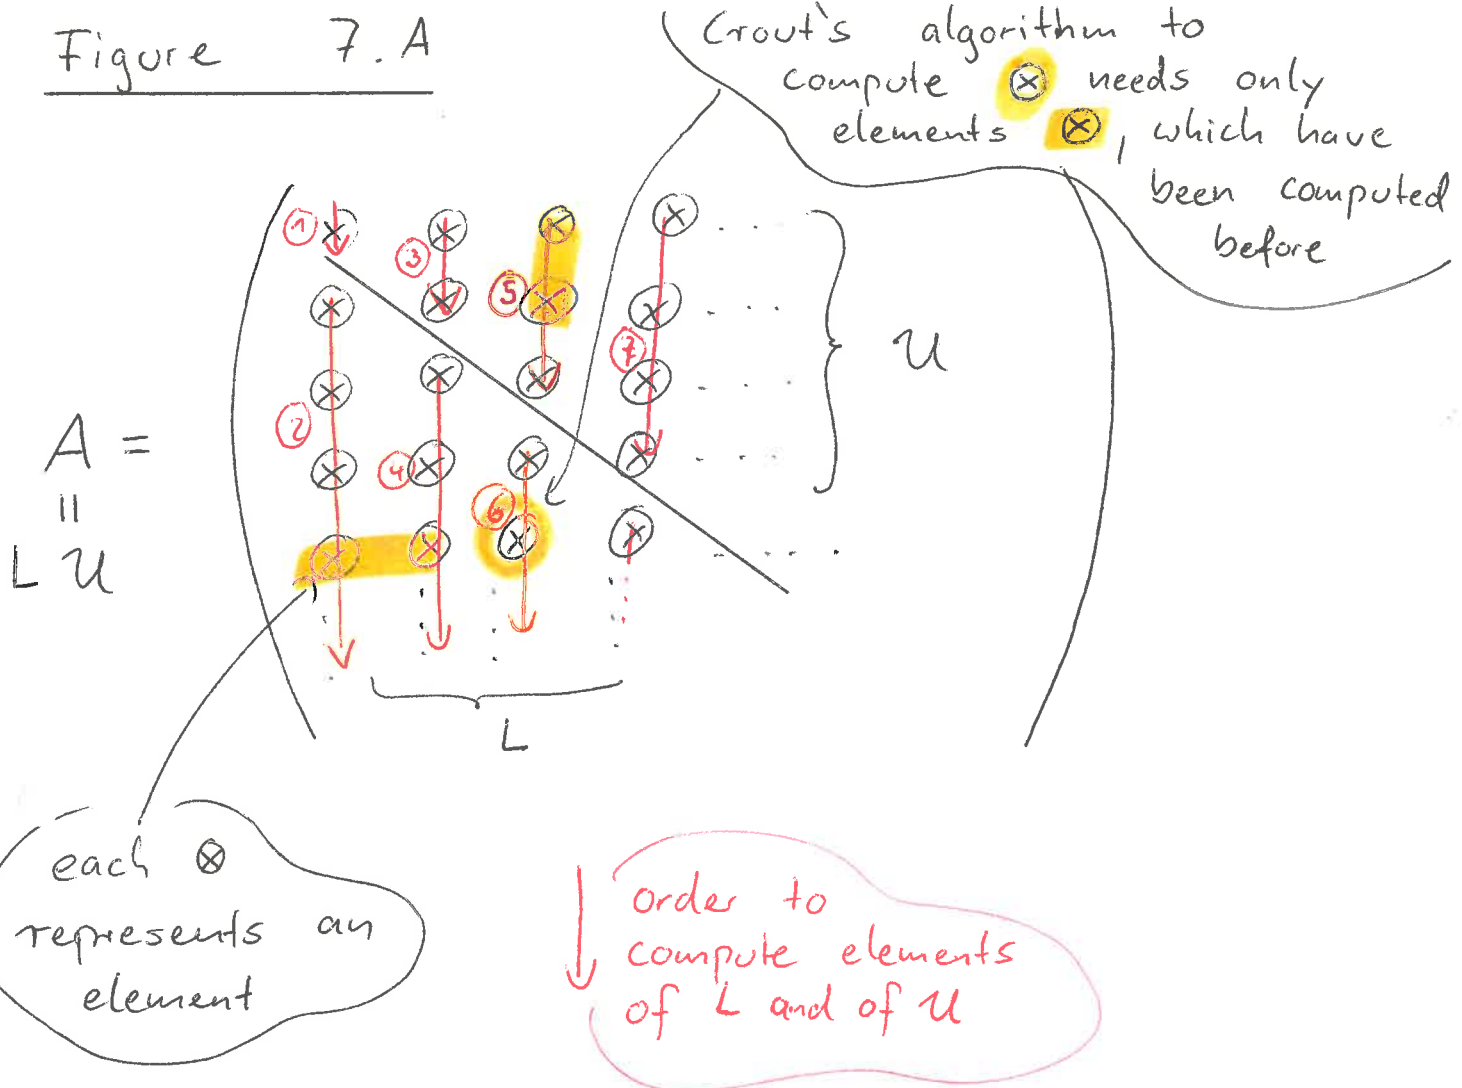 Figure 7.A
Crout's algorithm to
compute ⊗ needs only
elements ⊗, which have
been computed
before
1
3
5
7
U
A =
2
4
=
6
L U
L
each ⊗
represents an
element
order to
compute elements
of L and of U